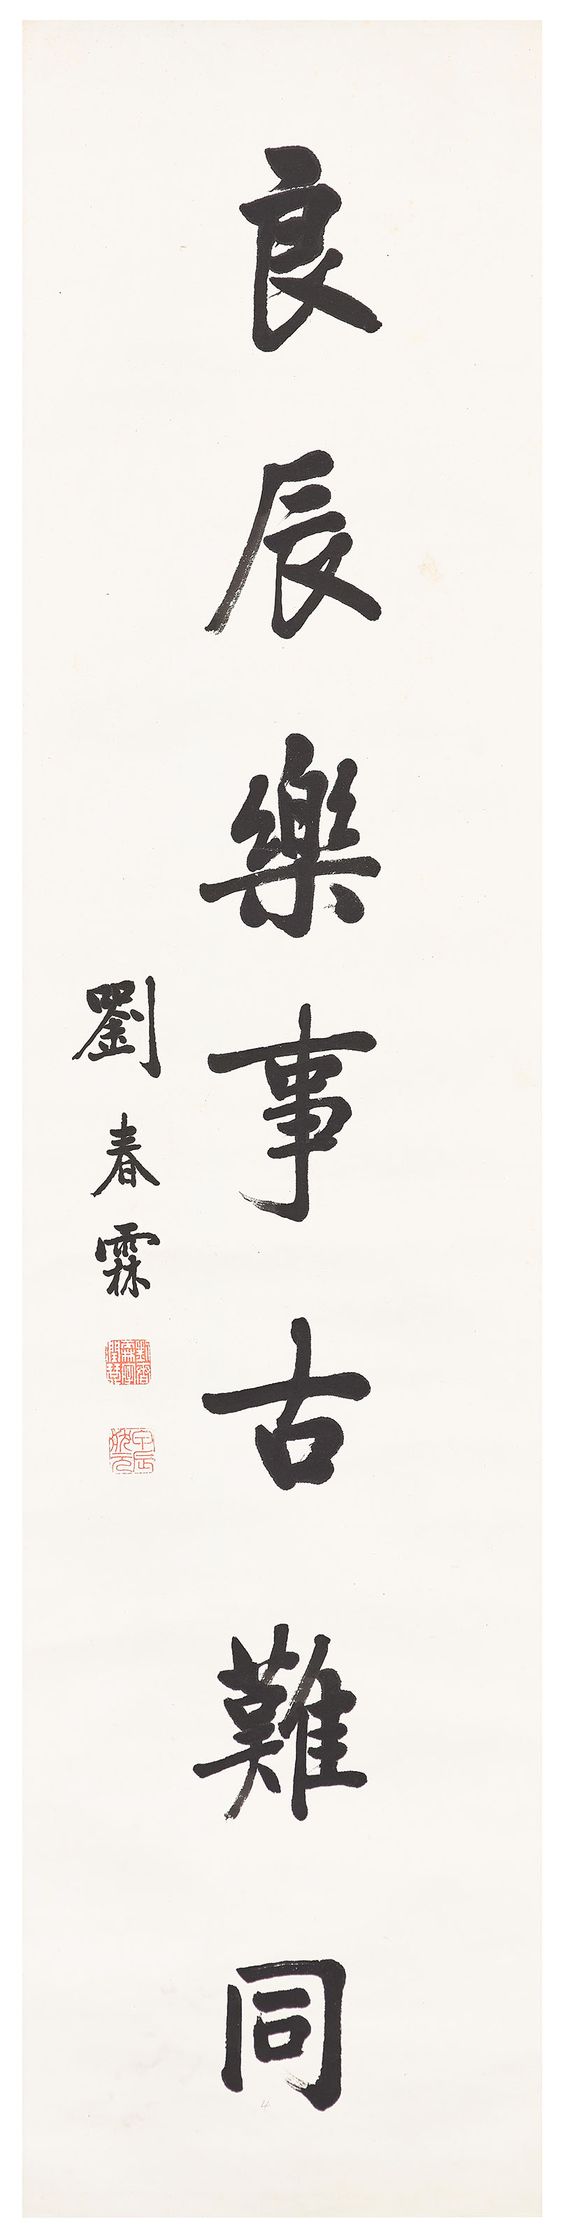 良辰樂事古難同
劉春霖